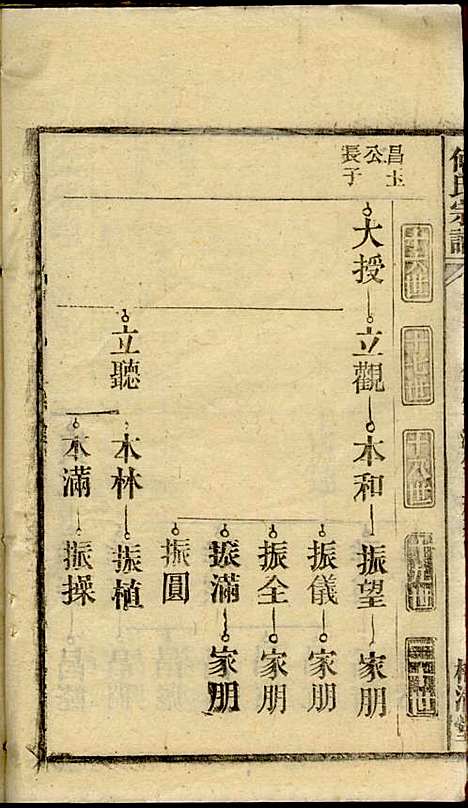 氏宗譜
十六世
十七世
十八世
十九世
二十世
昌玉
公
長子
大授
立觀
本和
振望
家朋
振儀
家朋
振全
家朋
振滿
家朋
振圓
立聽
本林
振植
本滿
振操